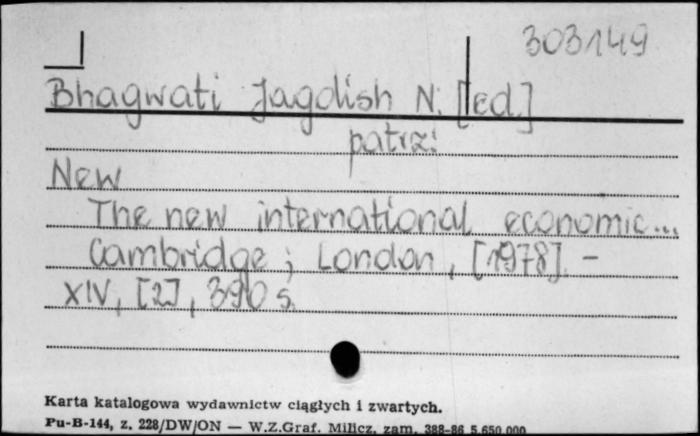 303149
Bhagwati Jagdish N. [ed.]
patrz:
New
The new international economic...
Cambridge ; London, [1978]. -
XIV, [2], 390 s.
Karta katalogowa wydawnictw ciągłych i zwartych.
Pu-B-144, z. 228/DW/ON — W.Z.Graf. Milicz, zam. 388-86 5.650.000